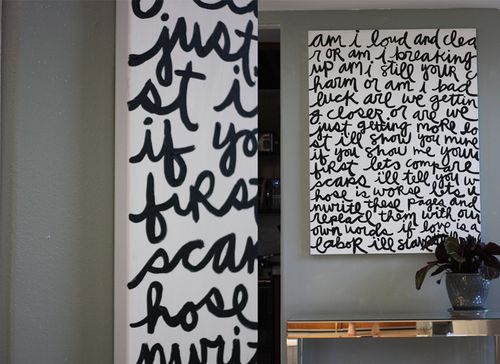 just
st i
if yo
first
scar
hose
nwrit
am i loud and clea
r or am i breaking
up am i still your c
harm or am i bad
luck are we gettin
g closer or are we
just getting more lo
st ill show you mine
if you show me yours
first lets compare
scars ill tell you w
hose is worse lets u
nwrite these pages and
replace them with our
own words if love is a
labor ill slave